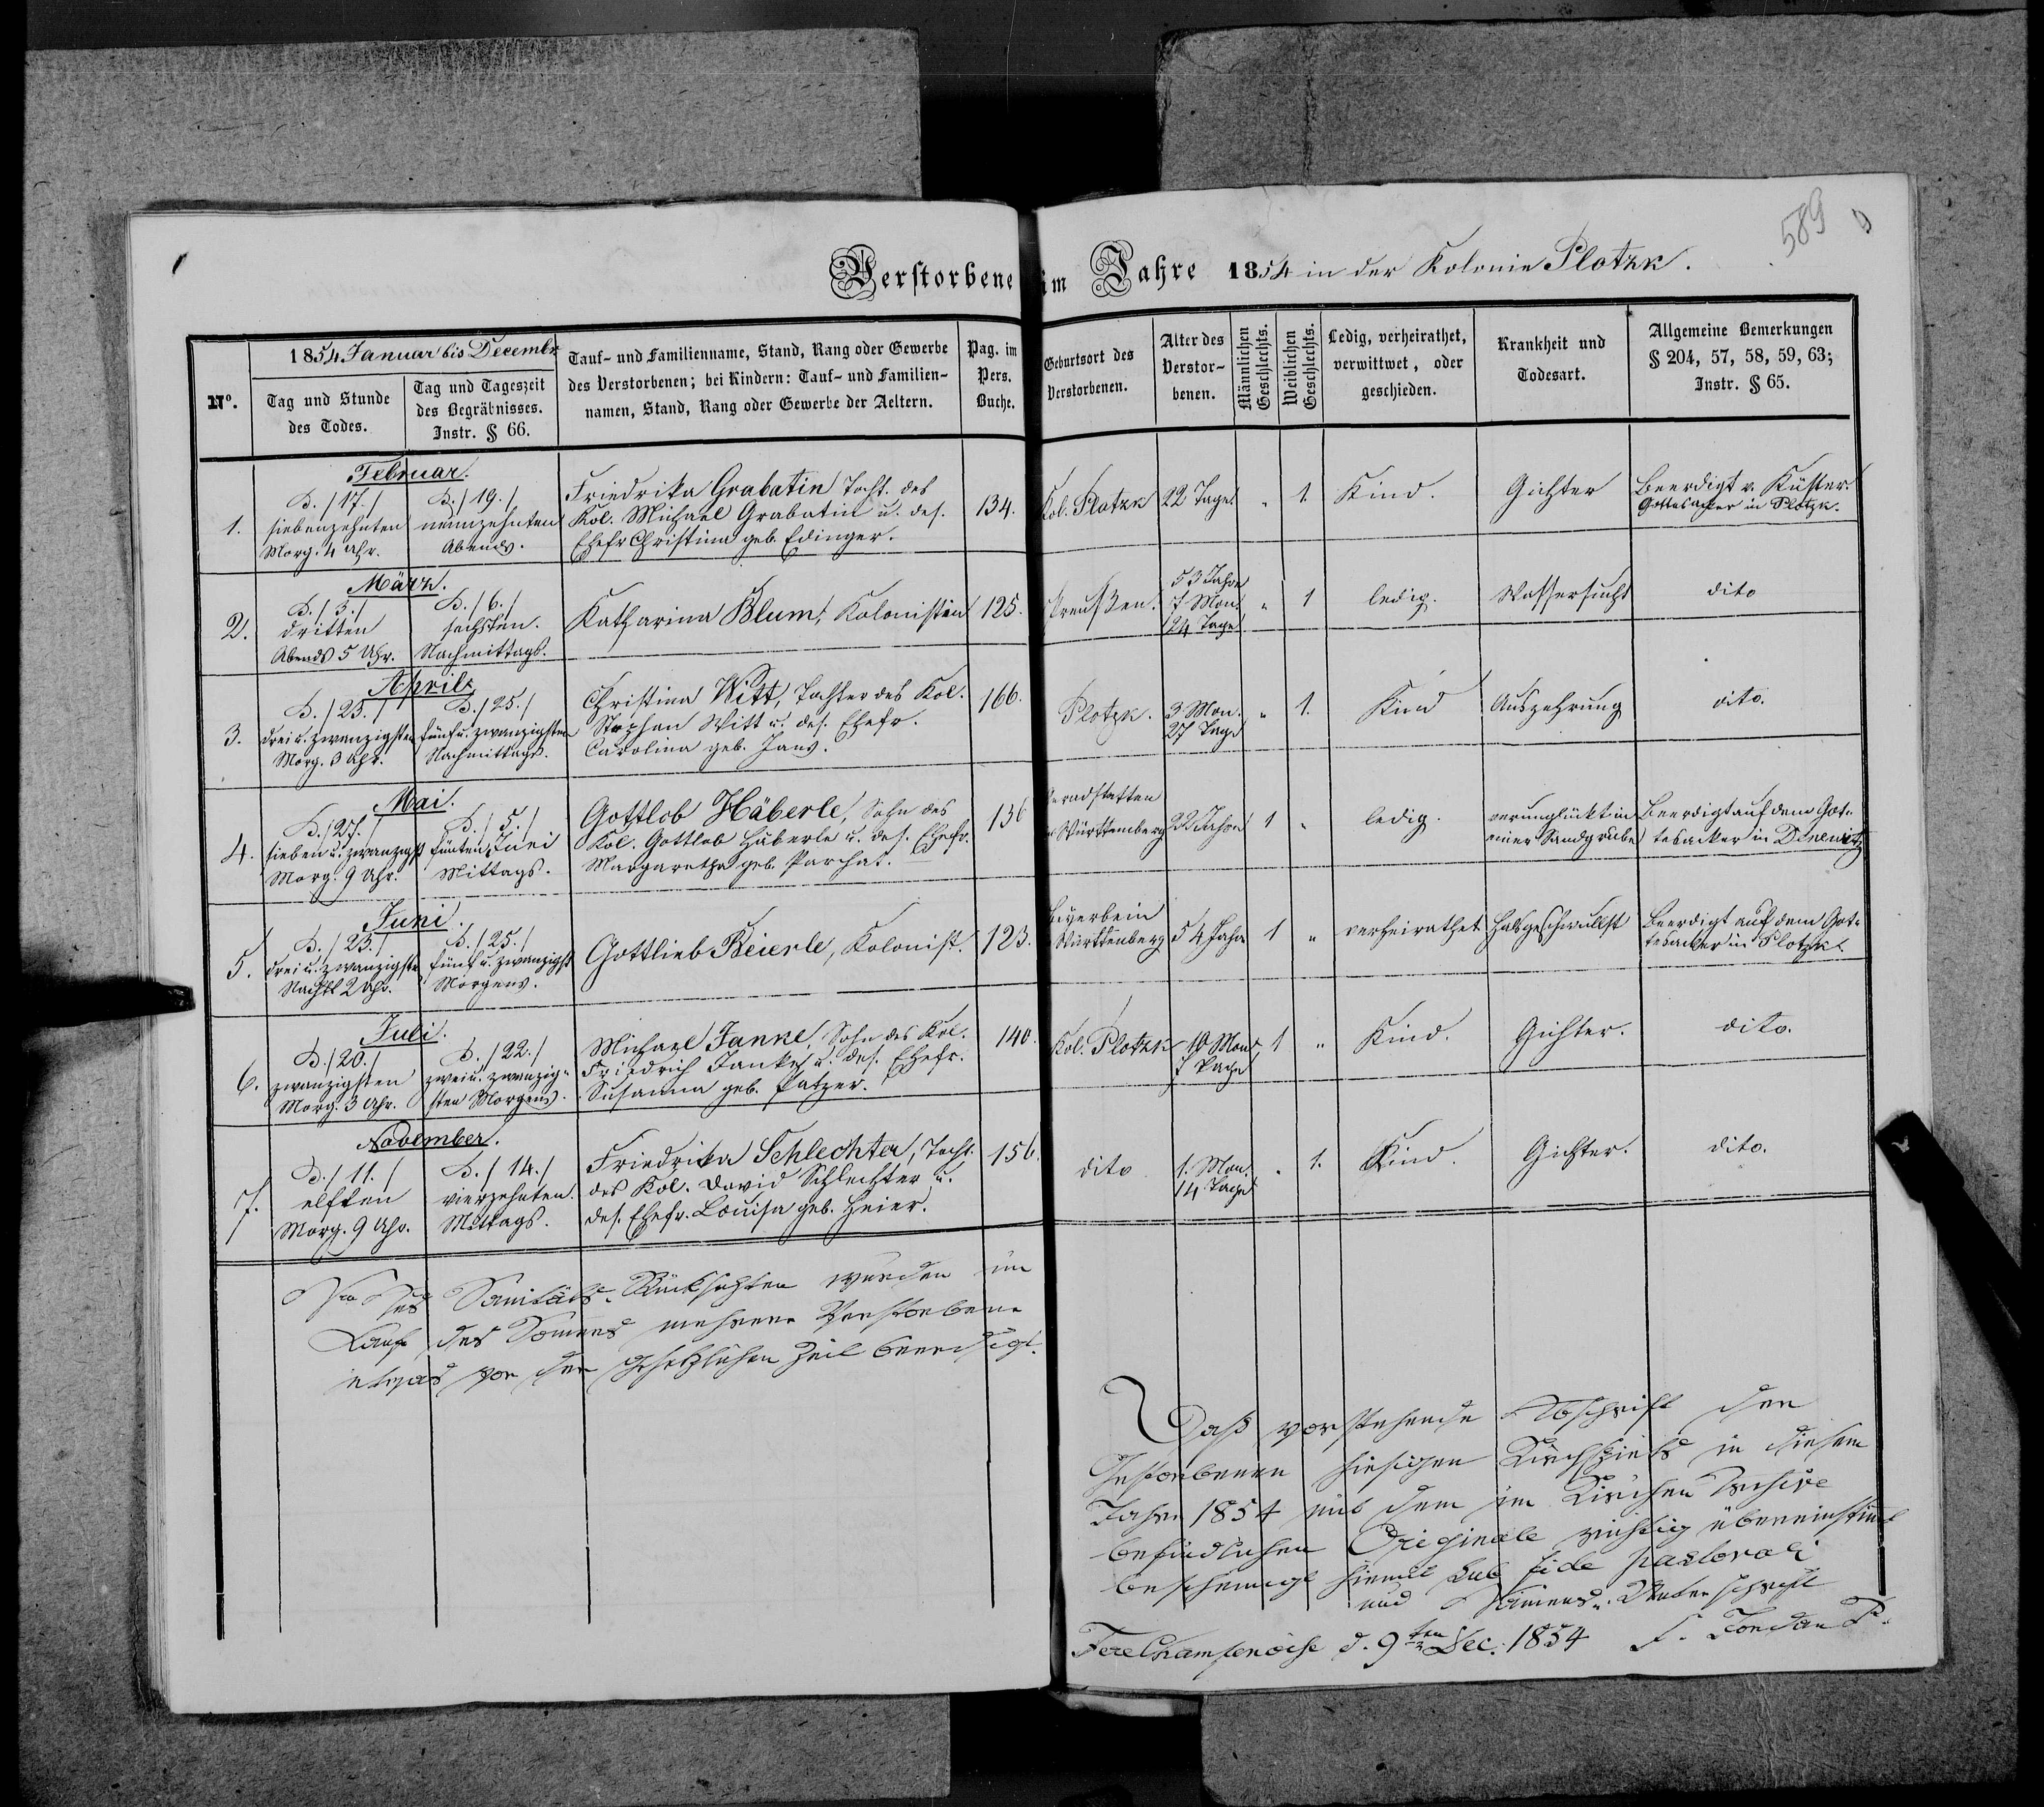 589
Verstorbene im Jahre 1854 in der Kolonie Plotzk.
Nº.
1854. Januar bis Decembr
Tag und Stunde
des Todes.
Tag und Tageszeit
des Begräbnisses.
Instr. § 66.
Tauf- und Familienname, Stand, Rang oder Gewerbe
des Verstorbenen; bei Kindern: Tauf- und Familien-
namen, Stand, Rang oder Gewerbe der Aeltern.
Pag. im
Pers.
Buche.
Geburtsort des
Verstorbenen.
Alter des
Verstor-
benen.
Männlichen
Geschlechts.
Weiblichen
Geschlechts.
Ledig, verheirathet,
verwittwet, oder
geschieden.
Krankheit und
Todesart.
Allgemeine Bemerkungen
§ 204, 57, 58, 59, 63;
Instr. § 65.
Februar.
1.
D. /17./
siebenzehnten
Morg. 4 Uhr.
D. /19./
neunzehnten
Abends.
Friedrika Grabatin Tocht. des
Kol. Michael Grabatin u. des.
Ehefr Christina geb. Edinger.
134.
Kol. Plotzk
22 Tage
"
1.
Kind.
Gichter
Beerdigt v. Küster.
Gottesacker in Plotzk.
März.
2.
D. /3./
dritten
Abends 5 Uhr.
D. /6./
sechsten.
Nachmittags.
Katharina Blum, Kolonistin
125.
Preußen.
53 Jahre
7 Mon.
24 Tage
"
1
ledig.
Wassersucht
dito
April
3.
D. /23./
drei u. zwanzigsten
Morg. 3 Uhr.
D. /25./
fünf u. zwanzigsten
Nachmittags.
Christina Witt, Tochter des Kol.
Stephan Witt u. des. Ehefr.
Carolina geb. Jans.
166.
Plotzk.
3 Mon.
27 Tage
"
1.
Kind
Auszehrung
dito.
Mai.
4.
D. /27./
sieben u. zwanzigst
Morg. 9 Uhr.
D. /5./
fünten Juni
Mittags.
Gottlob Häberle, Sohn des
Kol. Gottlob Häberle u. des. Ehefr.
Margaretha geb. Parchat.
136
Geradstatten
in Württemberg
22 Jahre
1
"
ledig.
verunglückt in
einer Sandgrube
Beerdigt auf dem Got-
tesacker in Denewitz
Juni.
5.
D. /23./
drei u. zwanzigste
Nachts 2 Uhr.
D. /25./
fünf u. zwanzigst
Morgens.
Gottlieb Beierle, Kolonist.
123.
Württenberg
54 Jahre
1
"
verheirathet
Halsgeschwullst
Beerdigt auf dem Got-
tesacker in Plotzk.
Juli.
6.
D. /20./
zwanzigsten
Morg. 3 Uhr.
D. /22./
zwei u. zwanzig-
sten Morgens.
Michael Janke, Sohn des Kol.
Friedrich Janke u. des. Ehefr.
Susanna geb. Patzer.
140.
Kol. Plotzk
10 Mon.
7 Tage
1
"
Kind.
Gichter.
dito.
November.
7.
D. /11./
elften
Morg. 9 Uhr.
D. /14./
vierzehnten.
Mittags.
Friedrika Schlechter, Tocht.
des Kol. David Schlechter u.
des. Ehefr. Louisa geb. Heier.
156.
dito
1. Mon.
14 Tage
"
1.
Kind.
Gichter.
dito.
Sanitäts-Rücksichten wurden im
Laufe des Somers mehrere Verstorbene
etwas vor der gesetzlichen Zeit beerdigt.
Daß vorstehende Abschrift der
Gestorbenen hiesigen Kirchspiels in diesem
Jahre 1854 mit dem im Kirchen Archive
befindlichen Originale richtig übereinstimt
bescheinigt hiemit sub fide pastorali
und Namens-Unterschrift
Fere Champenoise d. 9ten Dec. 1854 F. Jordan P.